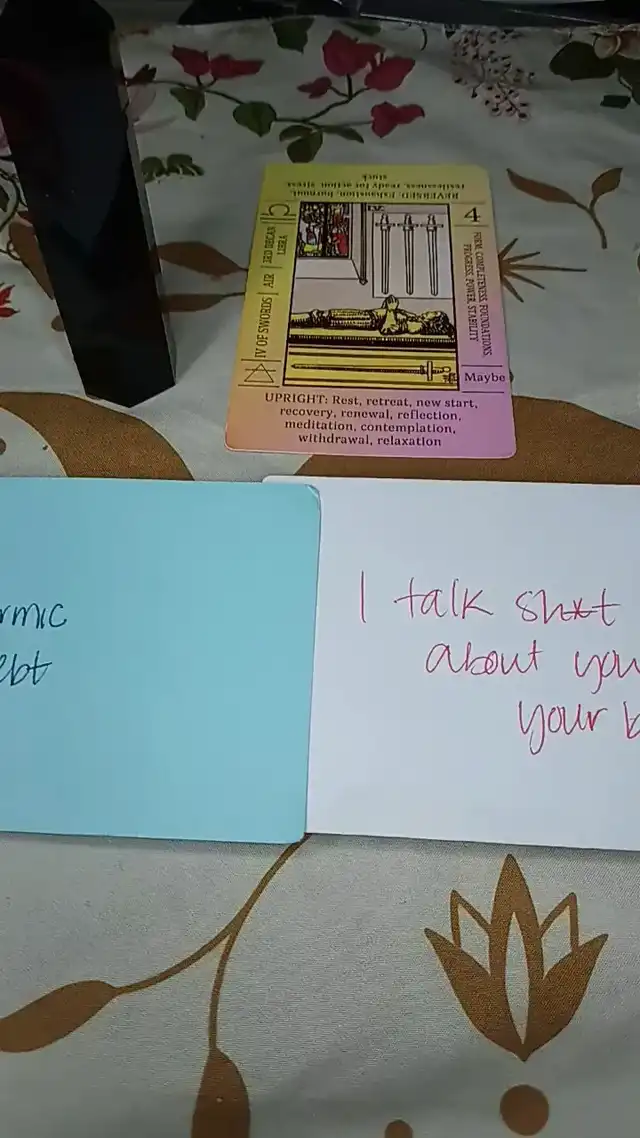 REVERSED: Exhaustion, burnout,
restlessness, ready for action, stress,
stuck
IV.
4
3RD DECAN
LIBRA
AIR
IV OF SWORDS
FORM, COMPLETENESS, FOUNDATIONS,
PROGRESS, POWER, STABILITY
Maybe
UPRIGHT: Rest, retreat, new start,
recovery, renewal, reflection,
meditation, contemplation,
withdrawal, relaxation
rmic
ebt
I talk sh*t
about you
your b